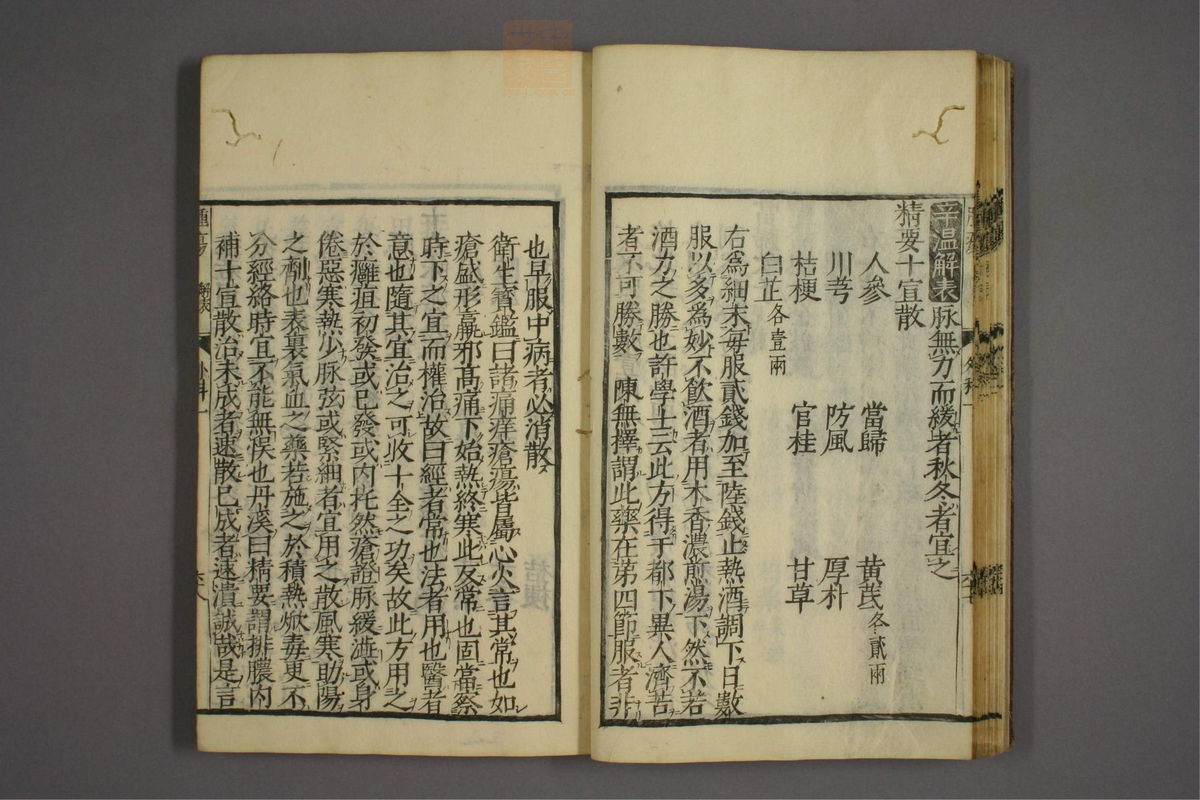 辛温解表脉無力而緩者秋冬者宜之
精要十宣散
人參 當歸 黄芪各貳兩
川芎 防風 厚朴
桔梗 官桂 甘草
白芷各壹兩
右爲細末每服貳錢加至陸錢止熱酒調下日數
服以多爲妙不飲酒者用木香濃煎湯下然不若
酒力之勝也許學士云此方得于都下異人濟苦
者不可勝數 陳無擇謂此藥在第四節服者非
也早服中病者必消散
衛生寳鑑曰諸痛痒瘡瘍皆屬心火言其常也如
瘡盛形羸邪髙痛下始熱終寒此反常也固當察
時下之宜而權治故曰經者常也法者用也醫者
意也隨其宜治之可收十全之功矣故此方用之
於癰疽初發或已發或内托然瘡證脉緩澁或身
倦惡寒熱少脉弦或緊細者宜用之散風寒助陽
之劑也表裏氣血之藥若施之於積熱焮毒更不
分經絡時宜不能無悮也丹溪曰精要謂排膿内
補十宣散治未成者速散已成者速潰誠哉是言
外科一